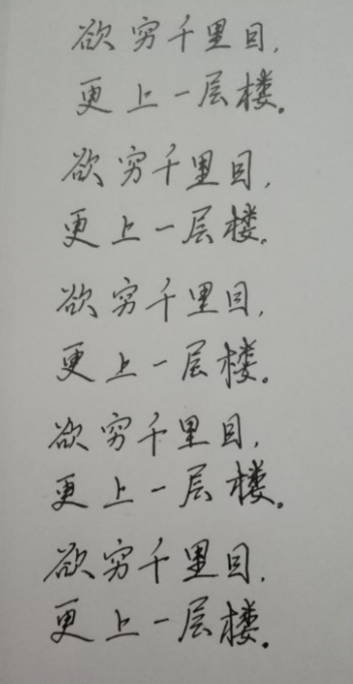 欲穷千里目,
更上一层楼。
欲穷千里目,
更上一层楼。
欲穷千里目,
更上一层楼。
欲穷千里目,
更上一层楼。
欲穷千里目,
更上一层楼。